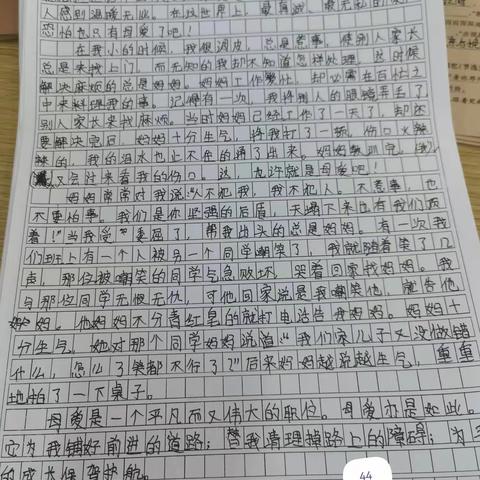 人感到温暖无比。在这世界上，最真诚、最无私的
恐怕也只有母爱了吧！
在我小的时候，我很调皮，总是惹事，使别人家长
总是来找上门，而无知的我却不知道怎样处理，这时候
解决麻烦的总是妈妈。妈妈工作繁忙，却必需在百忙之
中来料理我的事。记得有一次，我将别人的眼镜弄丢了，
别人家长来找麻烦。当时妈妈已经工作了一天了，却还
要解决完后，妈妈十分生气，将我打了一顿。伤口火辣
辣的，我的泪水也止不住的涌了出来。妈妈教训完
又会过来看我的伤口。这，也许就是母爱吧！
妈妈常常对我说“人不犯我，我不犯人。不惹事，也
不要怕事。我们是你坚强的后盾，天塌下来也有我们顶
着！”当我受“委屈了，帮我出头的总是妈妈。有一次我
们班上有一个人被另一个同学嘲笑了，我就随着笑了几
声，那位被嘲笑的同学气急败坏，哭着回家找妈妈。我
与那位同学无仇无仇，可他回家说是我嘲笑他，就告他
妈妈。他妈妈不分青红皂的就打电话告我妈妈。妈妈十
分生气，她对那个同学妈妈说道：“我们家儿子又没做错
什么，怎么了笑都不行了？”后来妈妈越说越生气，重重
地拍了一下桌子。
母爱是一个平凡而又伟大的职位。母爱亦是如此。
它为我铺好前进的道路；替我清理掉路上的障碍；为
的成长保驾护航。
44